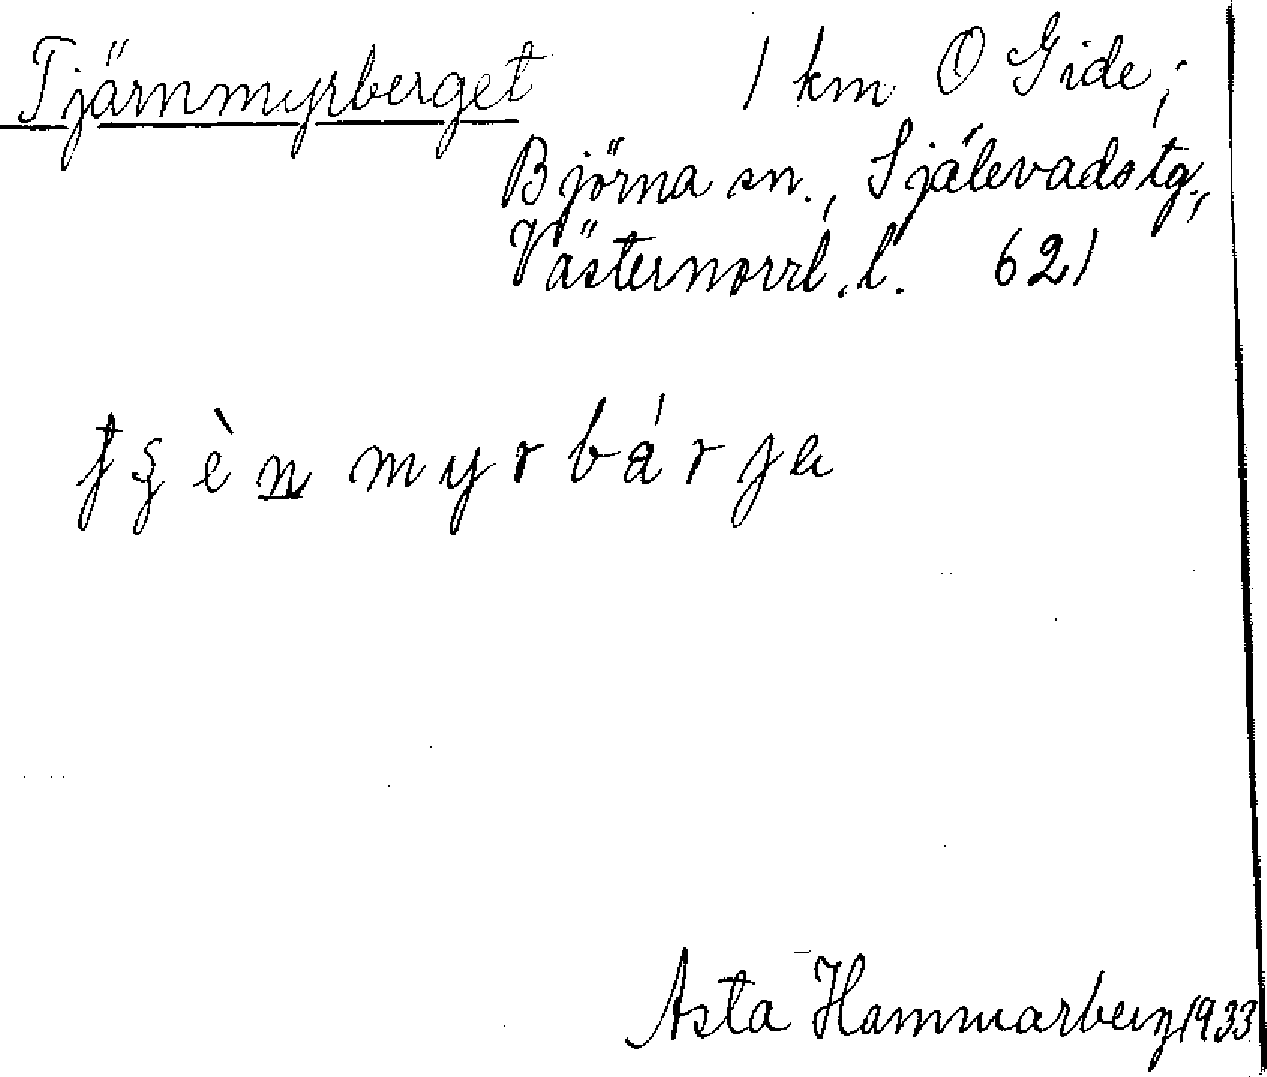 Tjärnmyrberget 1 km O Gide;
Björna sn., Själevads tg.,
Västernorrl. l. 621
tʂènmyrbárja
Asta Hammarberg 1933